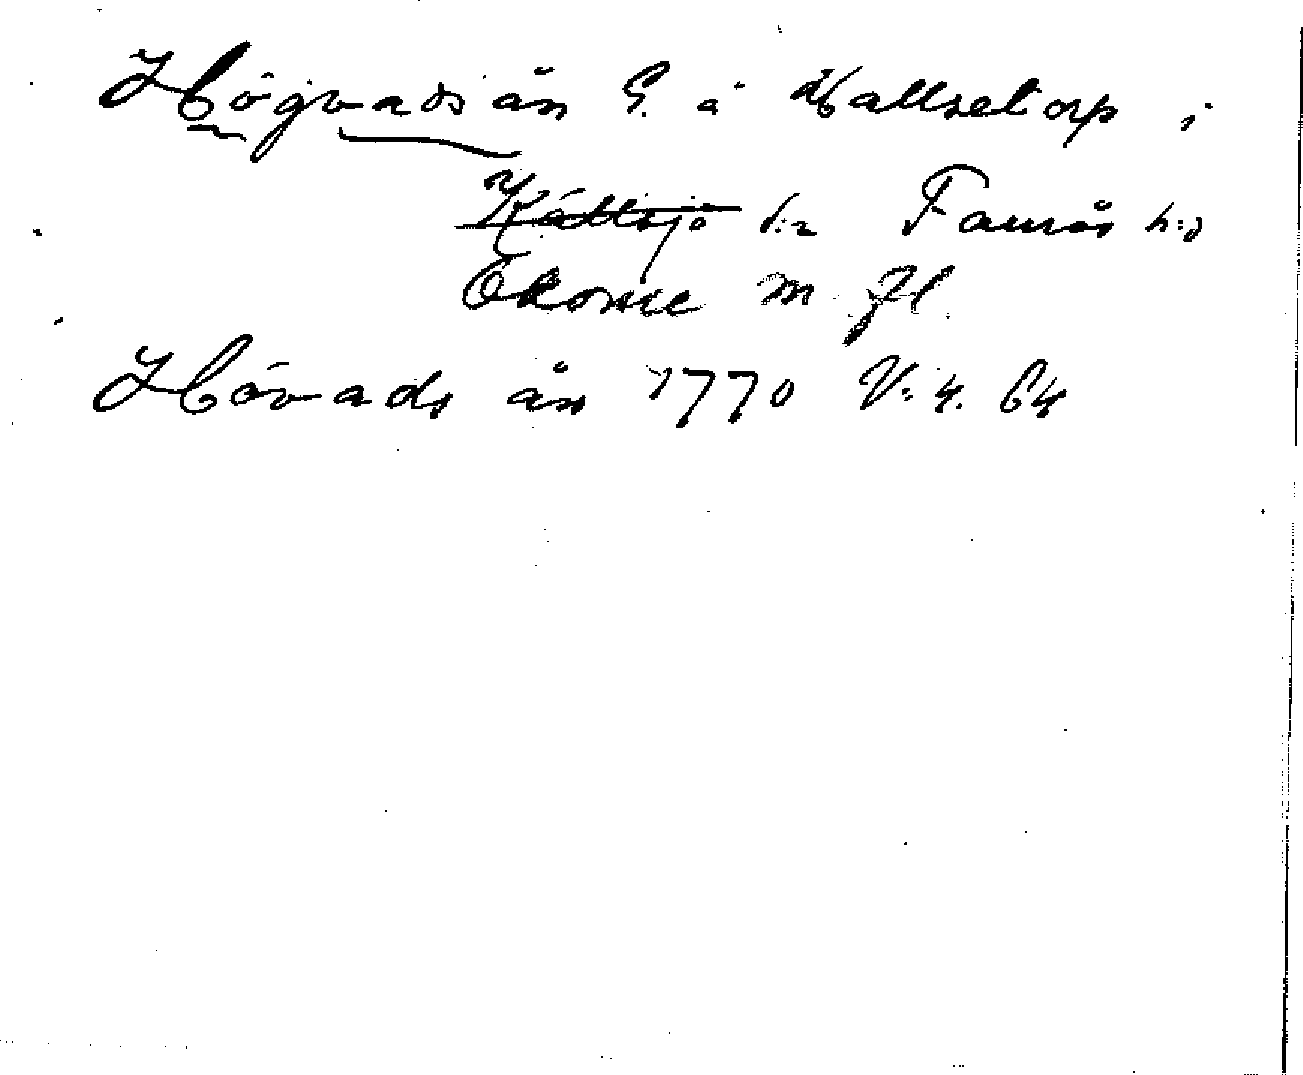 Högvads ån S. å Hallsetorp i
Källsjö s:n Faurås h:d
Okome m. fl.
Hövads ån 1770 V. 4. 64